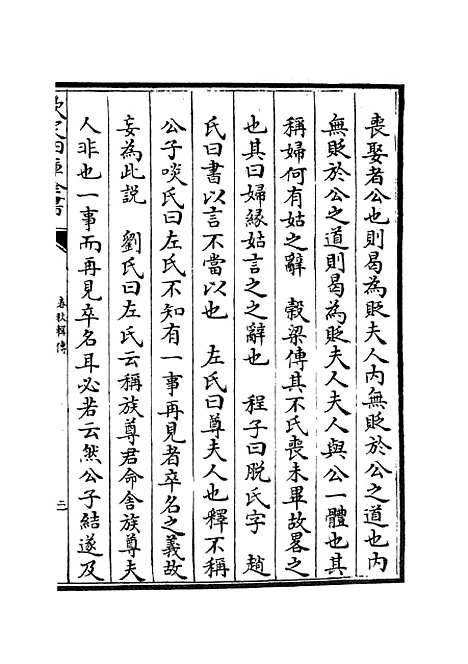 喪娶者公也則曷為貶夫人内無貶於公之道也内
無貶於公之道則曷為貶夫人夫人與公一體也其
稱婦何有姑之辭　穀梁傳其不氏喪未畢故畧之
也其曰婦緣姑言之之辭也　程子曰脱氏字　趙
氏曰書以言不當以也　左氏曰尊夫人也釋不稱
公子啖氏曰左氏不知有一事再見者卒名之義故
妄為此説　劉氏曰左氏云稱族尊君命舍族尊夫
人非也一事而再見卒名耳必若云然公子結遂及
欽定四庫全書
春秋輯傳
三